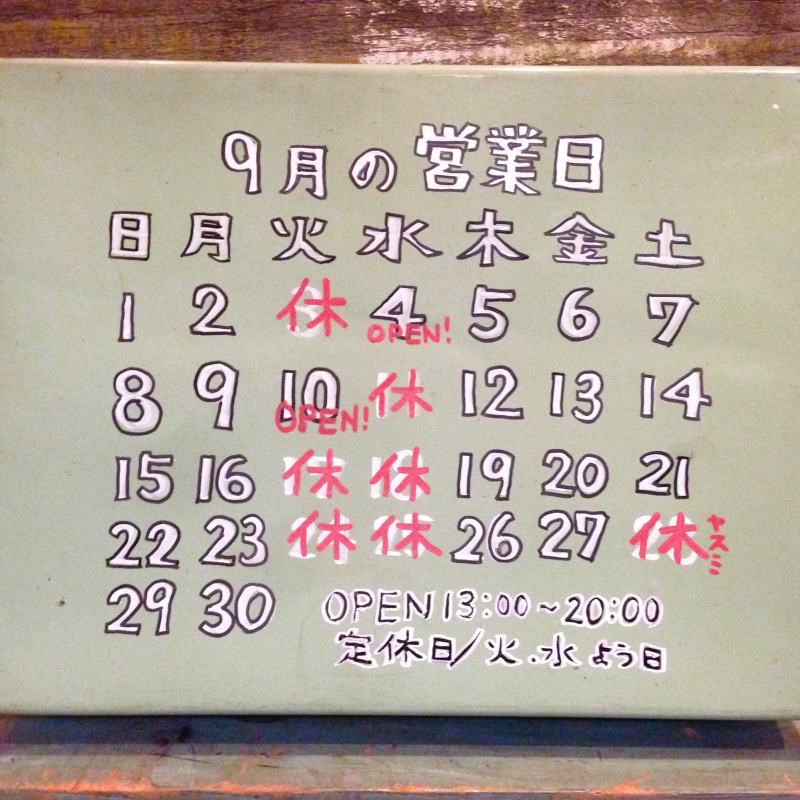 9月の営業日
日 月 火 水 木 金 土
1 2 休 4 5 6 7
OPEN!
8 9 10 休 12 13 14
OPEN!
15 16 休 休 19 20 21
22 23 休 休 26 27 休 ヤスミ
29 30
OPEN 13:00~20:00
定休日/火.水よう日